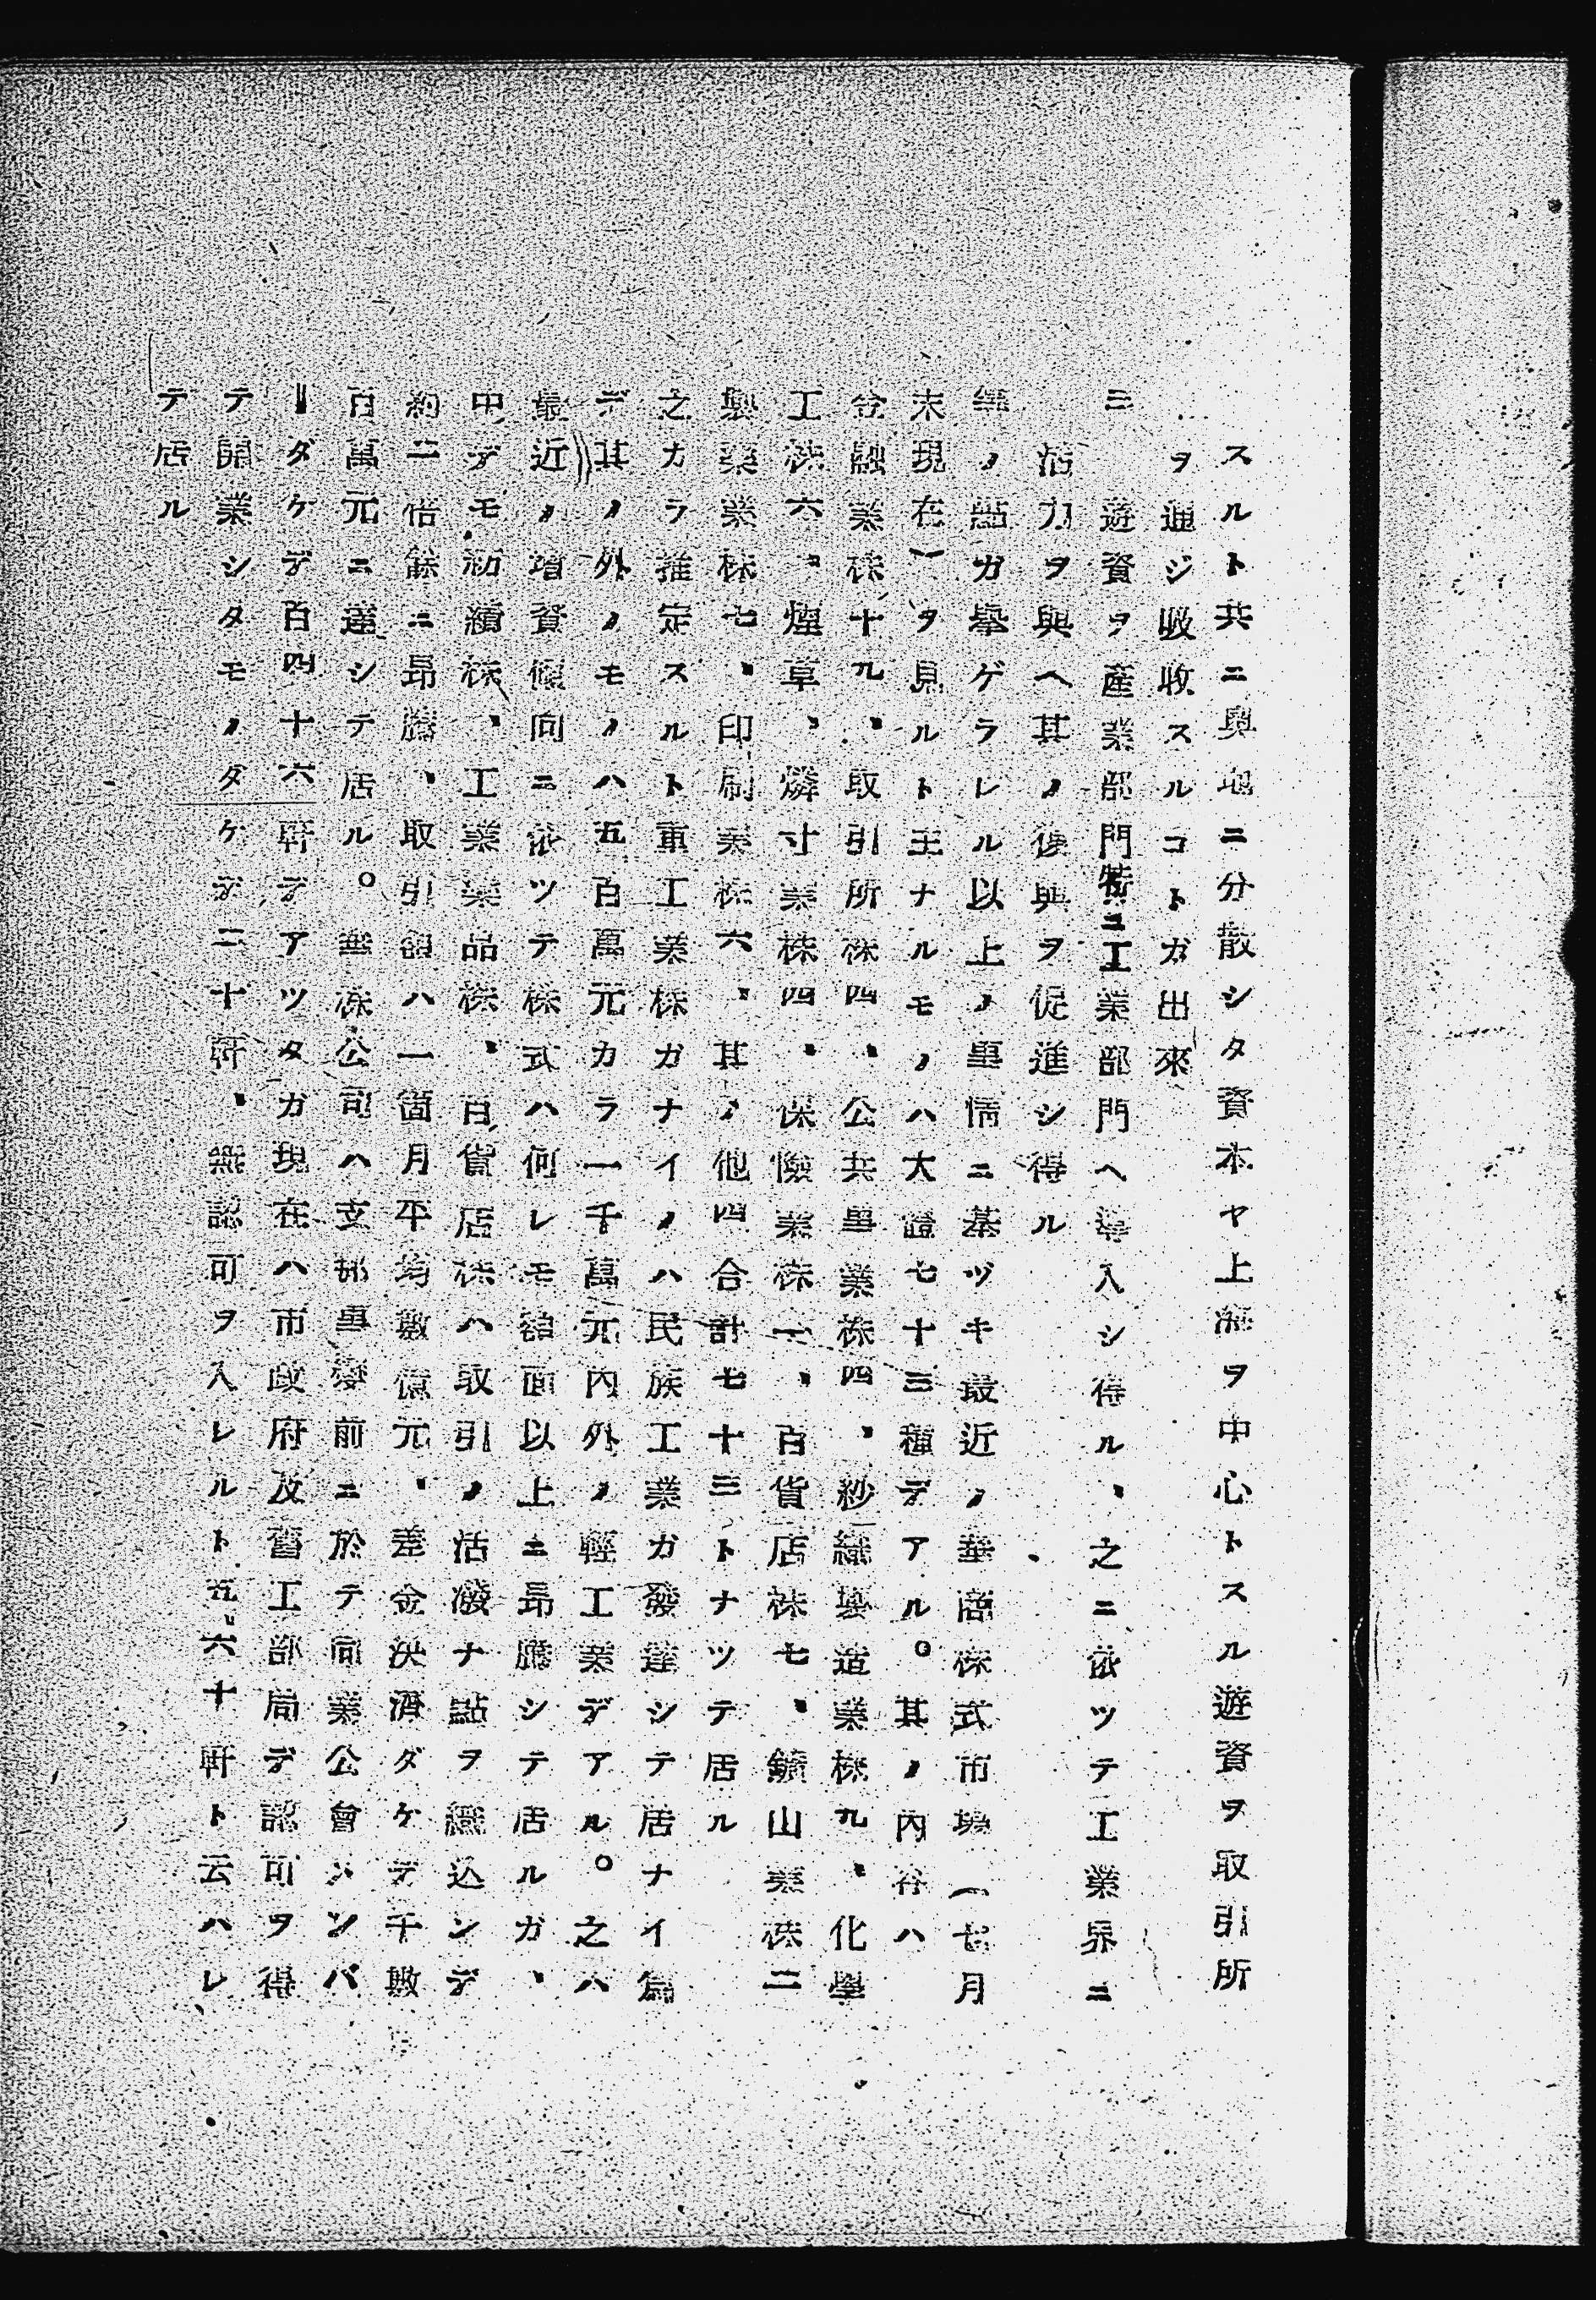 スルト共ニ奥地ニ分散シタ資本ヤ上海ヲ中心トスル遊資ヲ取引所
ヲ通ジ吸收スルコトガ出來
三 遊資ヲ產業部門特ニ工業部門ヘ導入シ得ル、之ニ依ツテ工業界ニ
活力ヲ與ヘ其ノ復興ヲ促進シ得ル
等ノ點ガ擧ゲラレル以上ノ事情ニ基ヅキ最近ノ華商株式市場(七月
末現在)ヲ見ルト主ナルモノハ大體七十三種デアル。其ノ內容ハ
金融業株十九、取引所株四、公共事業株四、紗織製造業株九、化學
工業株六、煙草、燐寸業株四、保險業株一、百貨店株七、鑛山業株二
製藥業株七、印刷業株六、其ノ他四合計七十三トナツテ居ル
之カラ推定スルト重工業株ガナイノハ民族工業ガ發達シテ居ナイ爲
デ其ノ外ノモノハ五百萬元カラ一千萬元內外ノ輕工業デアル。之ハ
最近ノ增資傾向ニ依ツテ株式ハ何レモ額面以上ニ昂騰シテ居ルガ、
中デモ紡績株、工業藥品株、百貨店株ハ取引ノ活潑ナ點ヲ織込ンデ
約二倍餘ニ昂騰、取引額ハ一箇月平均數億元、差金決濟ダケデ千數
百萬元ニ達シテ居ル。華株公司ハ支那事變前ニ於テ同業公會メンバ
ーダケデ百四十六軒デアツタガ現在ハ市政府及舊工部局デ認可ヲ得
テ開業シタモノダケデ二十軒、無認可ヲ入レルト五、六十軒ト云ハレ
テ居ル